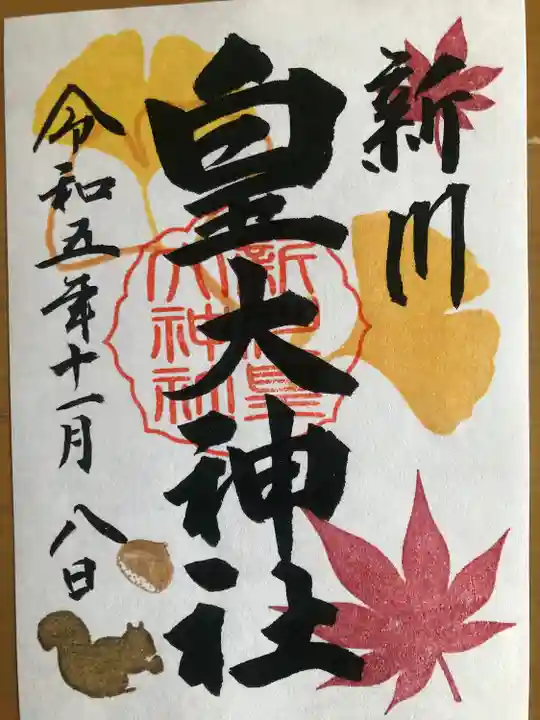 新川
皇大神社
新川皇大神社
令和五年十一月八日